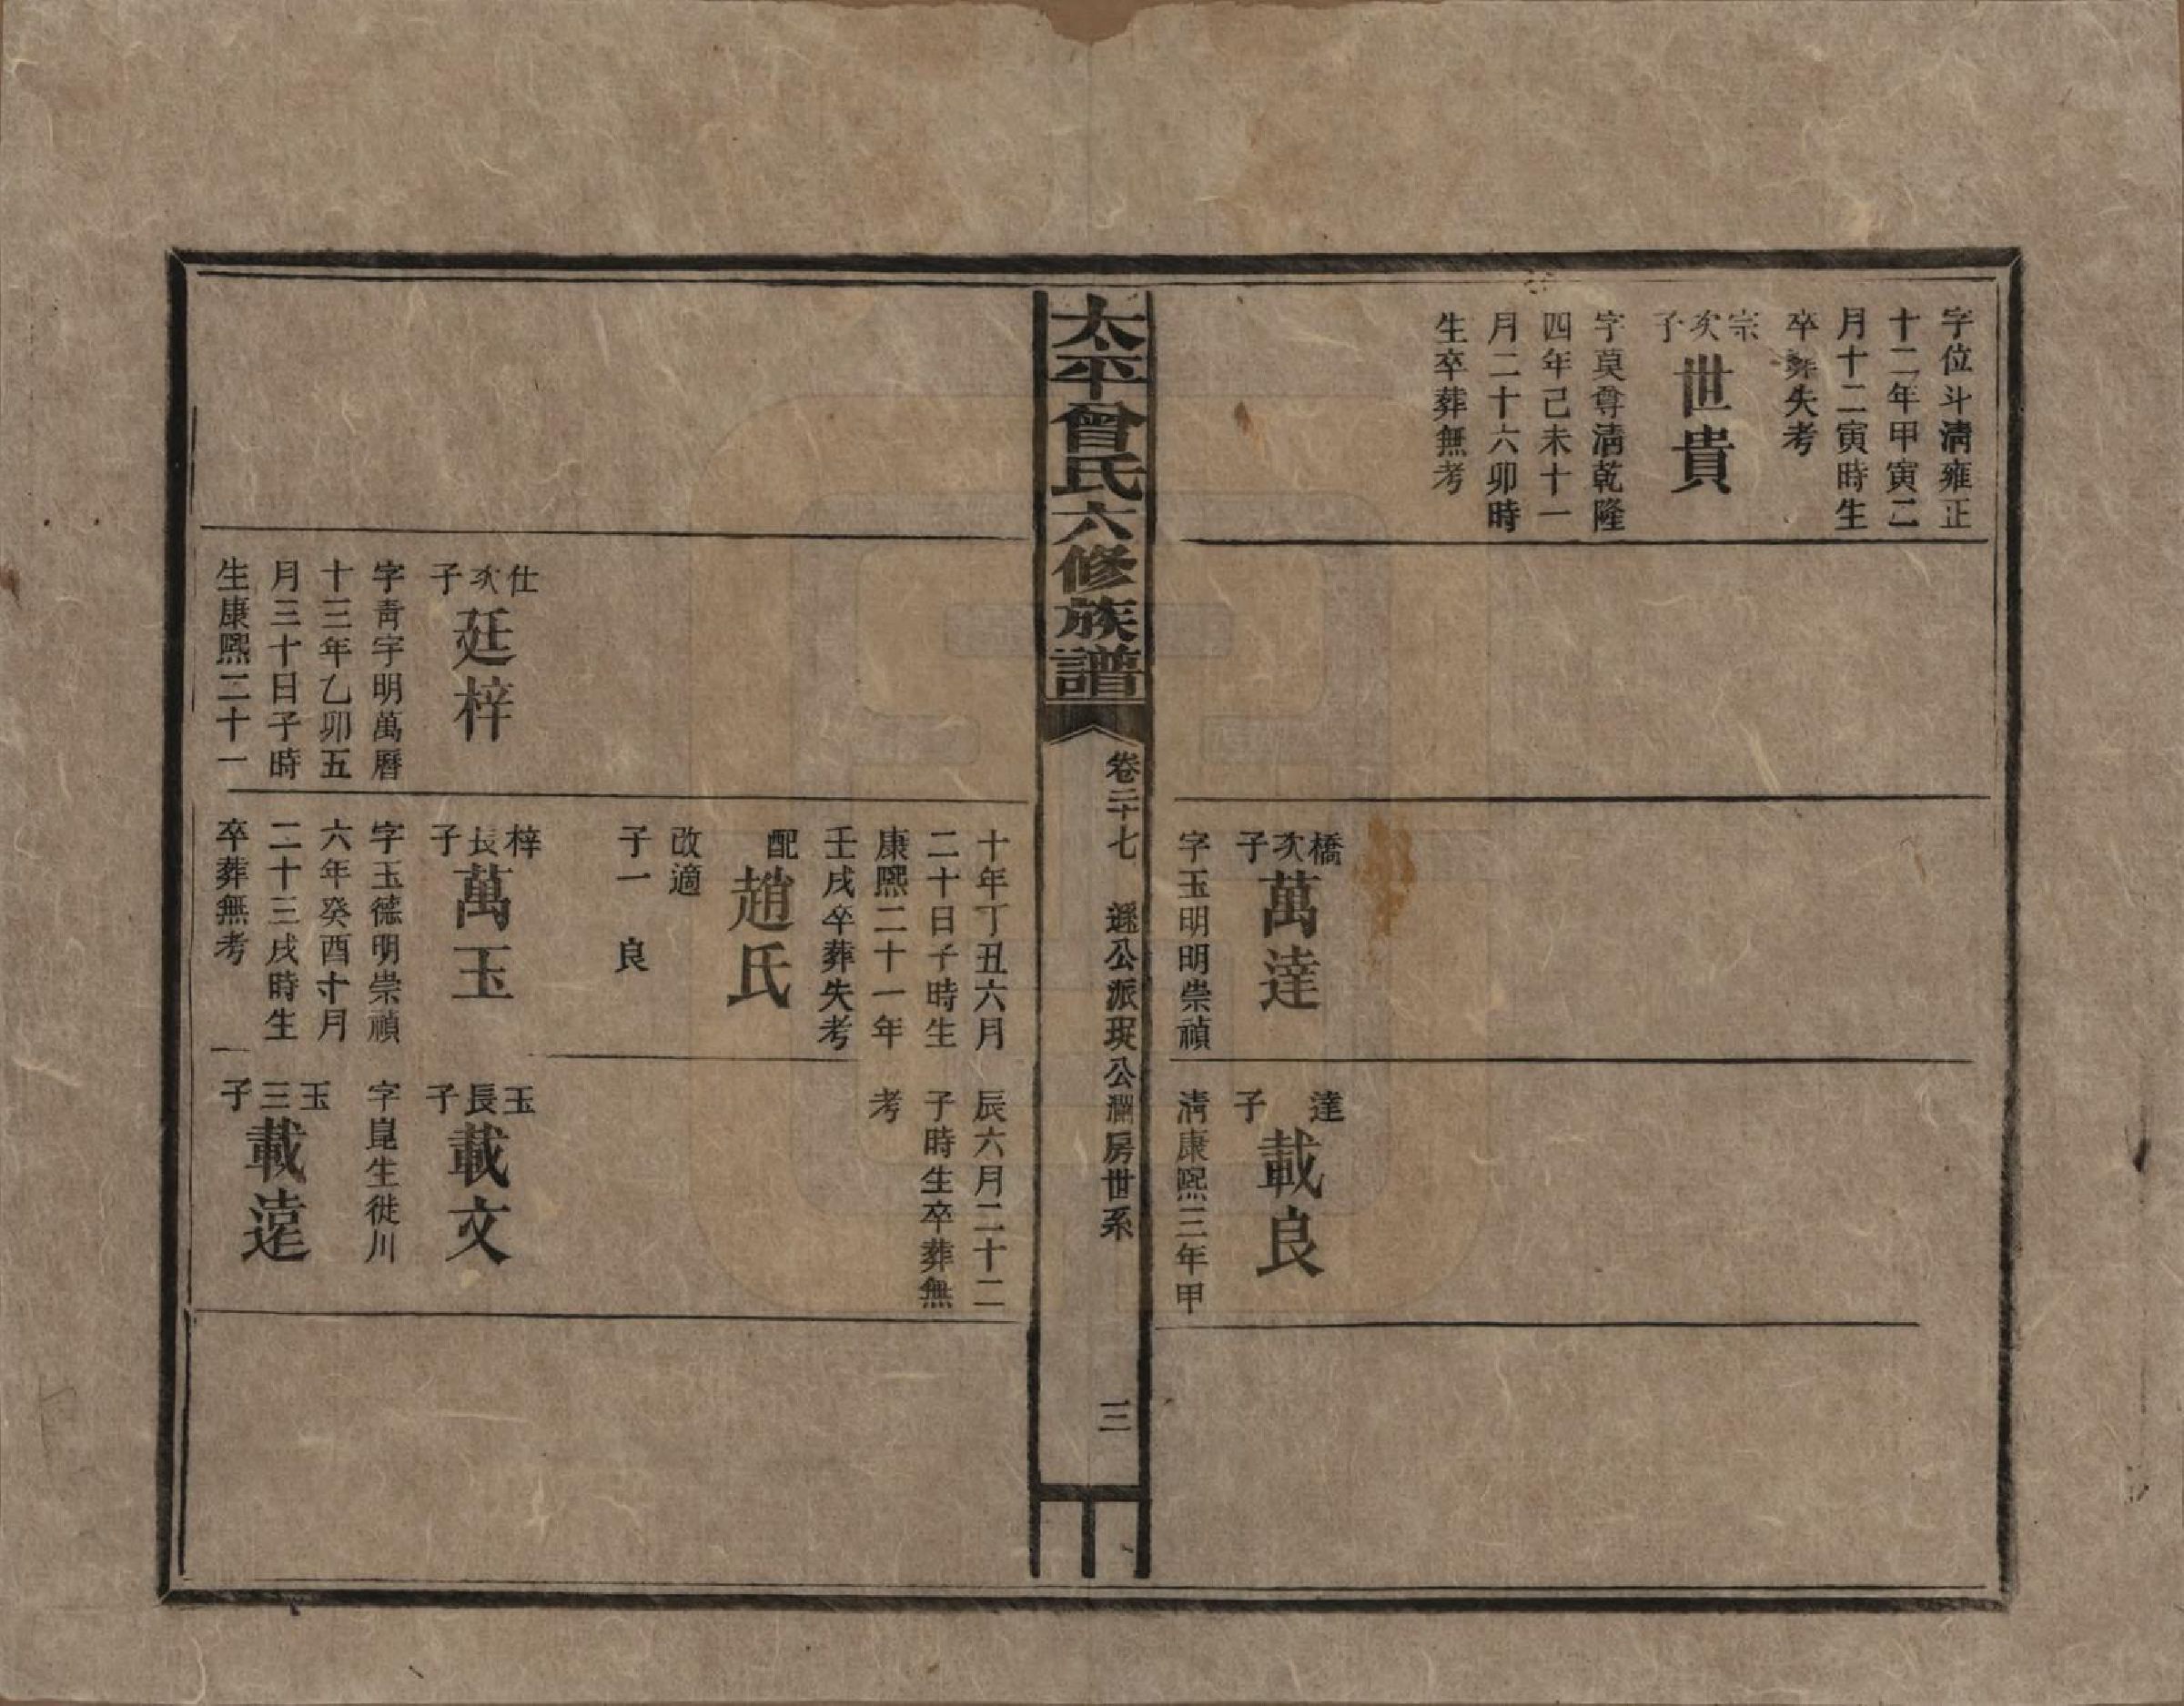 字位斗淸雍正
十二年甲寅二
月十二寅時生
卒葬失考
宗次子
世貴
字莫尊淸乾隆
四年己未十一
月二十六卯時
生卒葬無考
橋次子
萬達
字玉明明崇禎
達子
載良
淸康熙三年甲
太平曾氏六修族譜
卷二十七
遜公派珽公瀾房世系
三
十年丁丑六月
二十日子時生
康熙二十一年
壬戌卒葬失考
配
趙氏
改適
子一 良
辰六月二十二
子時生卒葬無
考
仕次子
廷梓
字靑宇明萬曆
十三年乙卯五
月三十日子時
生康熙二十一
梓長子
萬玉
字玉德明崇禎
六年癸酉十月
二十三戌時生
卒葬無考
玉長子
載文
字崑生徙川
玉三子
載遠